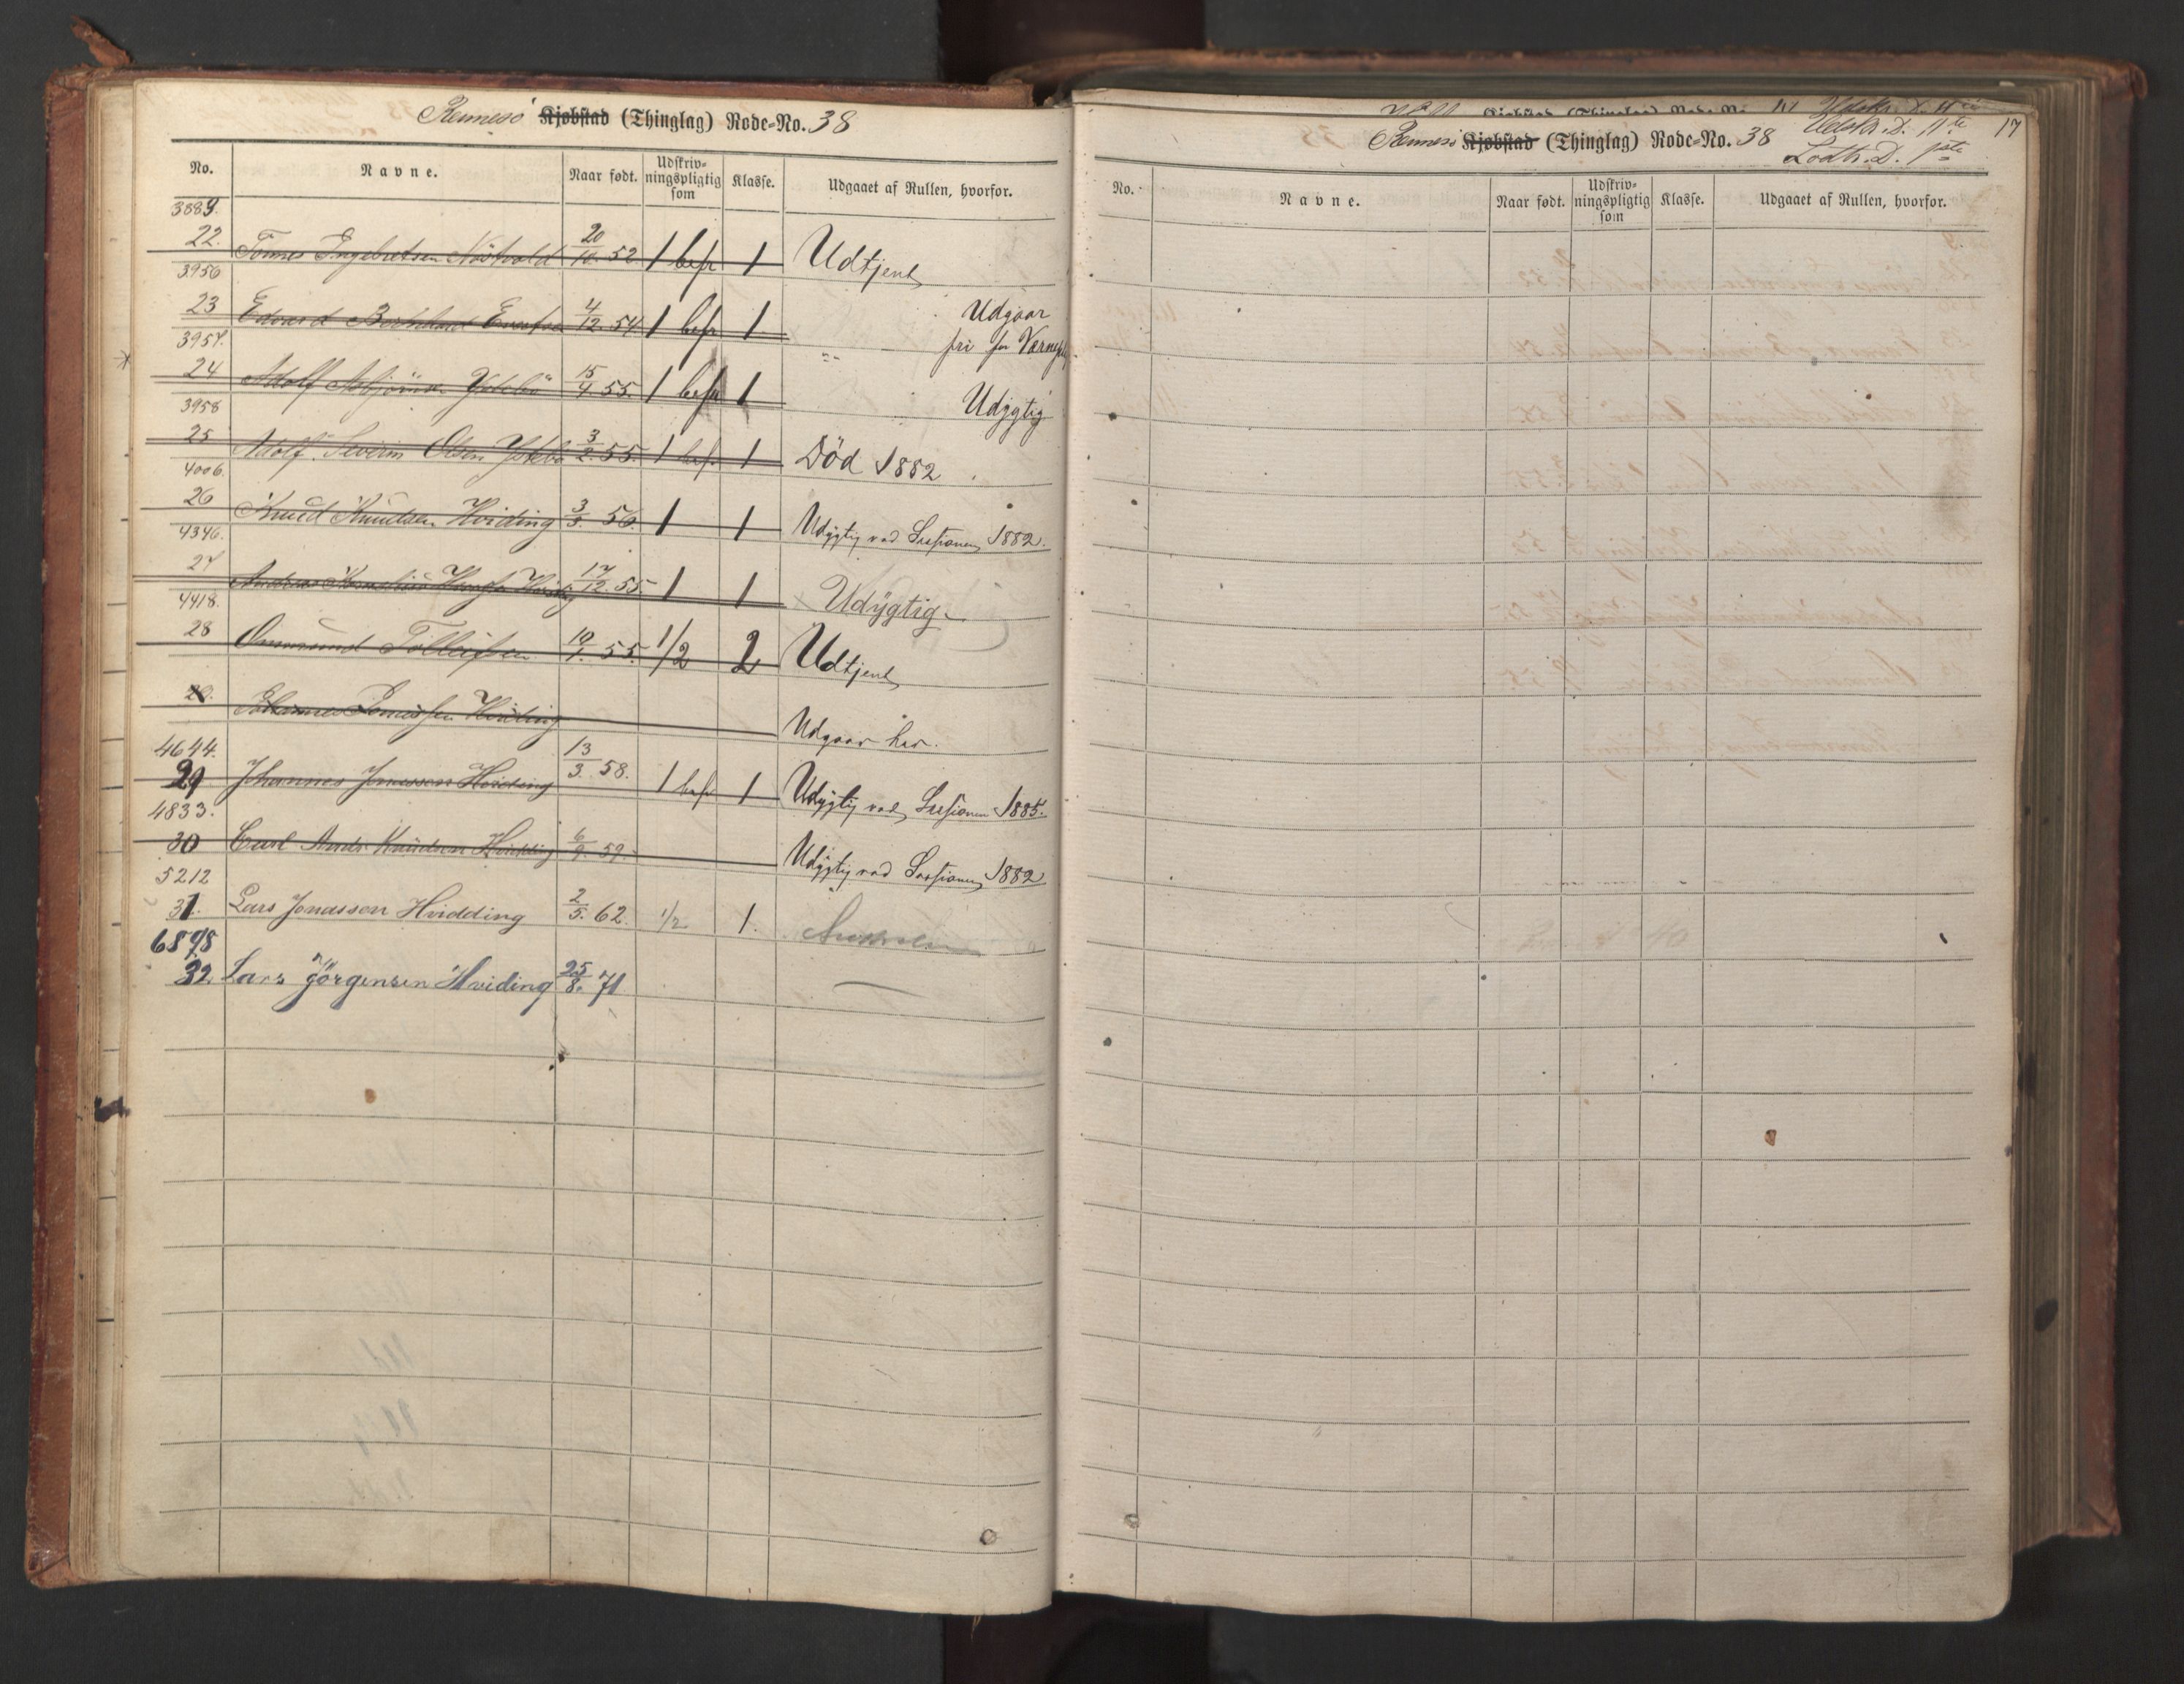 Rennesö Kjøbstad (Thinglag) Rode=No. 38
No. Navne. Naar født. Udskriv=ningspligtig som Klasse. Udgaaet af Rullen, hvorfor.
3889.
22. Tönnes Engebretsen Nöstvold 20/10. 52 1 befr 1 Udtjent
3956
23 Edvard Berthland 4/12. 54. 1 befr 1 Udgaar fri for Værnepl.
3957.
24 Adolf Asbjörnsen Ystebö 15/4. 55. 1 befr 1 Udygtig
3958
25 Adolf Severin Olsen Ystebö 3/2. 55. 1 befr 1 Död 1882.
4006.
26 Knud Knudsen Hviding 3/3. 56. 1 1 Udygtig ved Sessionen 1882.
4346.
27 Andreas Kornelius 17/12. 55 1 1 Udygtig
4418.
28 Ommund Tolleifsen 19/1. 55. 1/2 2 Udtjent
29. Johannes Jonassen Hviding Udgaar her.
4644.
29 Johannes Jonassen Hviding 13/3. 58. 1 befr 1 Udygtig ved Sessionen 1885.
4833.
30 Carl Andr. Knudsen Hvidding 6/9. 59. Udygtig ved Sessionen 1882
5212
31. Lars Jonassen Hvidding 2/5. 62. 1/2 1.
6898
32. Lars Jörgensen Hviding 25/8. 71.
Rennesö Kjøbstad (Thinglag) Rode=No. 38 Udskr. D. 11te 17
Lodtr. D. 1ste
No. Navne. Naar født. Udskriv=ningspligtig som Klasse. Udgaaet af Rullen, hvorfor.